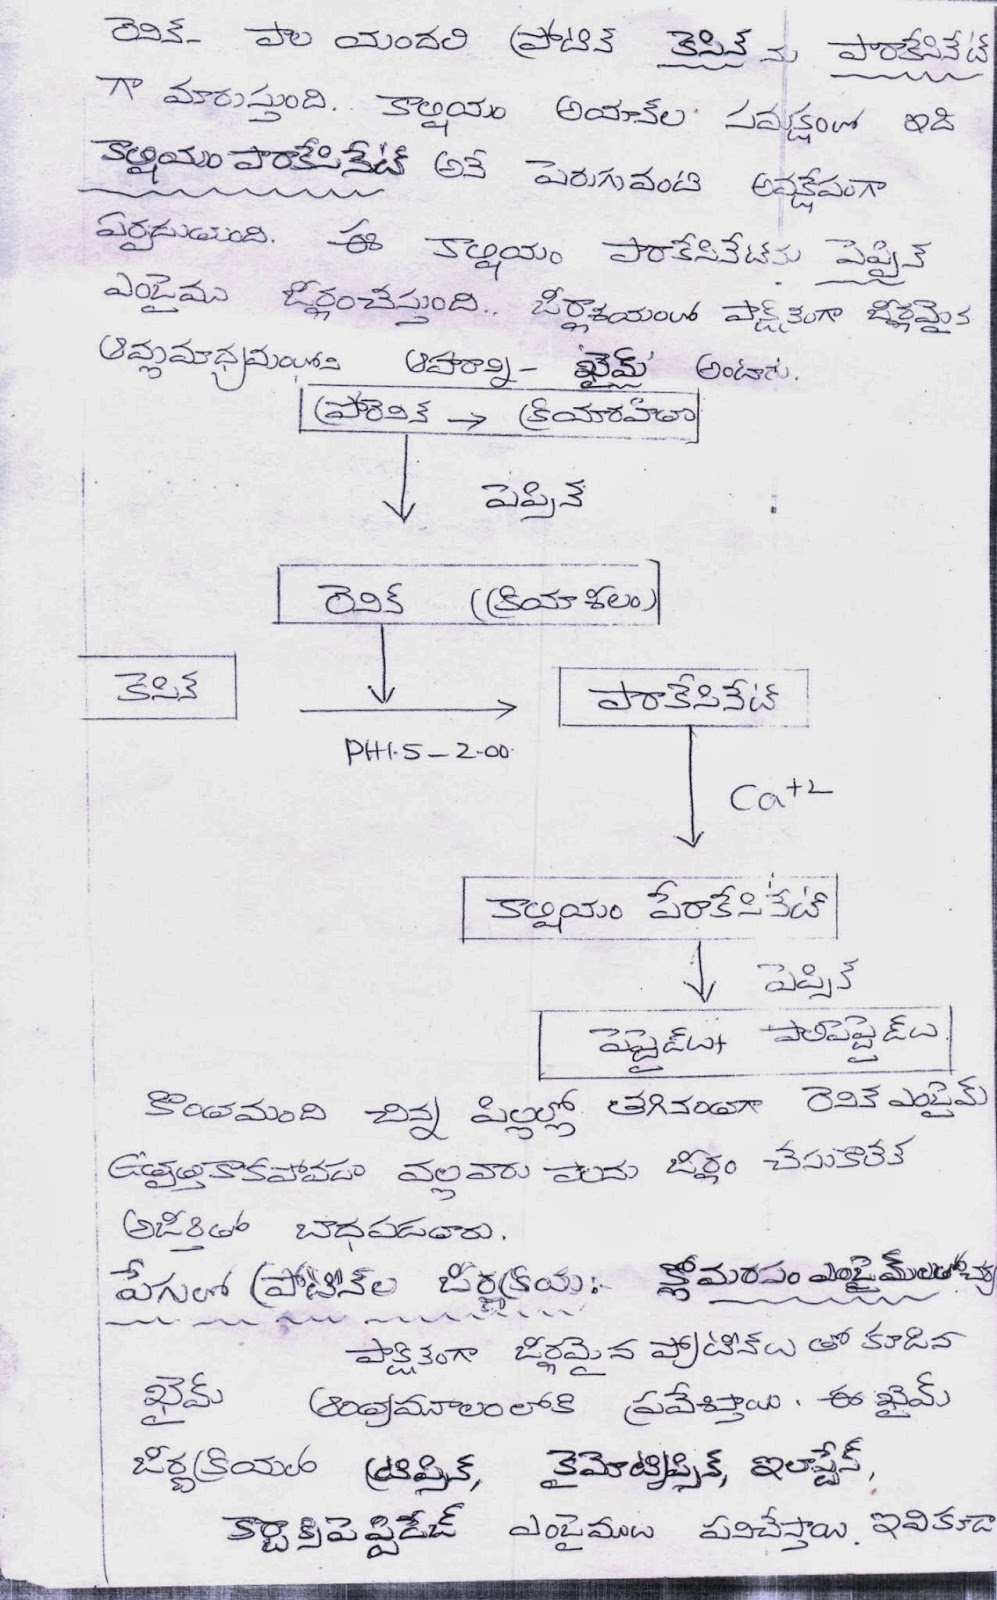 రెనిన్- పాల యందలి ప్రోటీన్ కెసిన్ ను పారాకేసినేట్
గా మారుస్తుంది. కాల్షియం అయాన్ల సమక్షంలో ఇది
కాల్షియం పారాకేసినేట్ అనే పెరుగువంటి అవక్షేపంగా
ఏర్పడుతుంది. ఈ కాల్షియం పారాకేసినేట్‌ను పెప్సిన్
ఎంజైము జీర్ణంచేస్తుంది.. జీర్ణాశయంలో పాక్షికంగా జీర్ణమైన
ఆమ్లమాధ్యమంలోని ఆహారాన్ని- 'ఖైమ్' అంటారు.
ప్రోరెనిన్ → క్రియారహితం
పెప్సిన్
రెనిన్ (క్రియాశీలం)
కెసిన్
పారాకేసినేట్
PH1.5-2.00.
Ca+2
కాల్షియం పేరాకేసినేట్
పెప్సిన్
పెప్టైడ్‌లు+ పాలిపెప్టైడ్‌లు
కొంతమంది చిన్న పిల్లల్లో తగినంతగా రెనిన్ ఎంజైమ్
ఉత్పత్తికాకపోవడం వల్లవారు పాలను జీర్ణం చేసుకోలేక
అజీర్తితో బాధపడతారు.
పేగులో ప్రోటీన్‌ల జీర్ణక్రియ:- క్లోమరసం ఎంజైమ్‌లలతోచర్య
పాక్షికంగా జీర్ణమైన ప్రోటీన్‌లు తో కూడిన
ఖైమ్ ఆంత్రమూలంలోకి ప్రవేశిస్తాయి. ఈ ఖైమ్
జీర్ణక్రియలో ట్రిప్సిన్, కైమోట్రిప్సిన్, ఇలాస్టేన్,
కార్బాక్సిపెప్టిడేజ్ ఎంజైములు పనిచేస్తాయి. ఇవికూడా